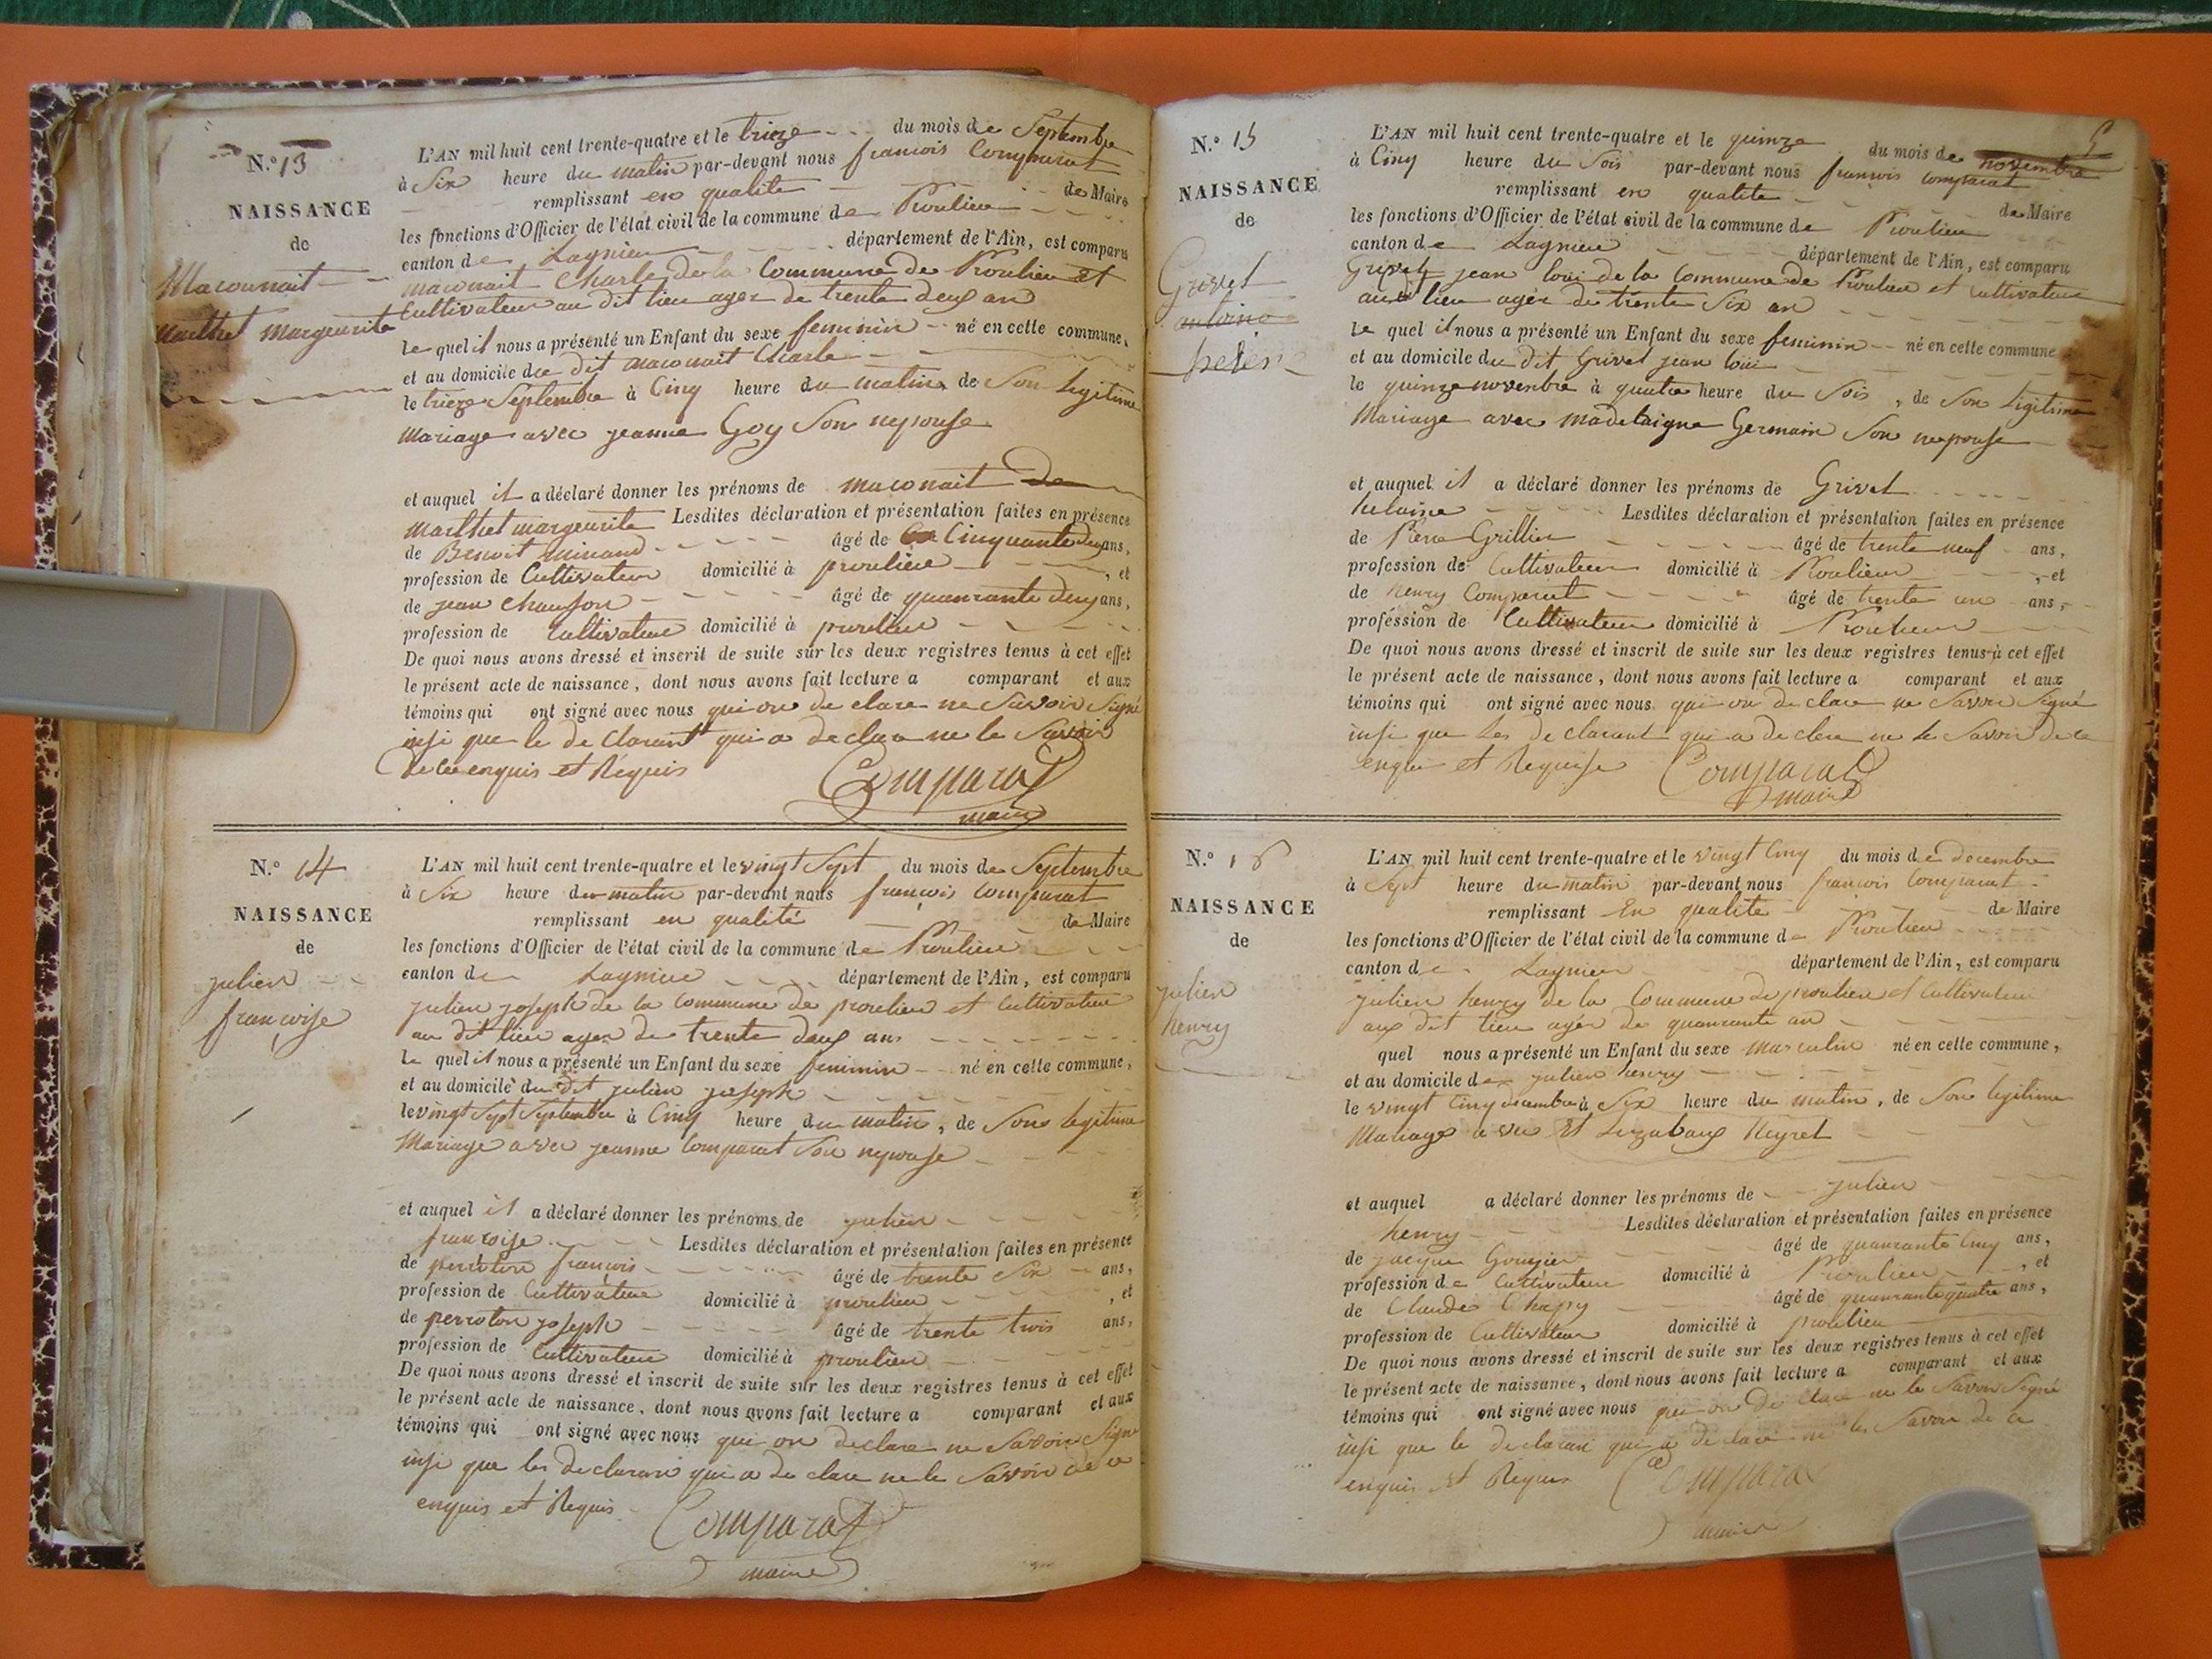 N.° 13
NAISSANCE
de
Maconnait
Marthet Margeurite
L'AN mil huit cent trente-quatre et le trieze du mois de Septembre
à Six heure du matin par-devant nous francois Comparat
remplissant en qualité de Maire
les fonctions d'Officier de l'état civil de la commune de Proulieu
canton de Lagnieu département de l'Ain, est comparu
maconait Charle de la Commune de Proulieu et
Cultivateur au dit lieu ager de trente deux an
le quel il nous a présenté un Enfant du sexe feminin né en cette commune,
et au domicile du dit maconait Charle
le trieze Septembre à Cinq heure du matin, de Son legitime
Mariage avec jeanne Goy Son nepouse
et auquel il a déclaré donner les prénoms de maconait de
Marthet margeurite Lesdites déclaration et présentation faites en présence
de Benoit âgé de Cinquante deux ans,
profession de Cultivateur domicilié à proulieu , et
de jean Chaufon âgé de quanrante deux ans,
profession de Cultivateur domicilié à proulieu
De quoi nous avons dressé et inscrit de suite sur les deux registres tenus à cet effet
le présent acte de naissance, dont nous avons fait lecture a comparant et aux
témoins qui ont signé avec nous qui on de clare ne Savoir Signé
insi que le de clarant qui a declare ne le Savoir
de ce enquis et Requis Comparat
maire
N.° 14
NAISSANCE
de
julien
françoise
L'AN mil huit cent trente-quatre et le vingt Sept du mois de Septembre
à Six heure du matin par-devant nous françois Comparat
remplissant en qualité de Maire
les fonctions d'Officier de l'état civil de la commune de Proulieu
canton de Lagnieu département de l'Ain, est comparu
julien joseph de la commune de proulieu et Cultivateur
au dit lieu ager de trente deux ans
le quel il nous a présenté un Enfant du sexe feminin né en cette commune,
et au domicile du dit julien joseph
le vingt Sept Septembre à Cinq heure du matin, de Son legitime
Mariage avec jeanne Comparat Son nepouse
et auquel il a déclaré donner les prénoms de julien
françoise Lesdites déclaration et présentation faites en présence
de perroton françois âgé de trente Six ans,
profession de Cultivateur domicilié à proulieu , et
de perroton joseph âgé de trente trois ans,
profession de Cultivateur domicilié à proulieu
De quoi nous avons dressé et inscrit de suite sur les deux registres tenus à cet effet
le présent acte de naissance, dont nous avons fait lecture a comparant et aux
témoins qui ont signé avec nous qui on declare ne Savoir Signé
insi que les declarant qui a de clare ne le Savoir de ce
enquis et Requis Comparat
maire
5
N.° 15
NAISSANCE
de
Grivet
antoine
helene
L'AN mil huit cent trente-quatre et le quinze du mois de novembre
à Cinq heure du Soir par-devant nous françois comparat
remplissant en qualite de Maire
les fonctions d'Officier de l'état civil de la commune de Proulieu
canton de Lagnieu département de l'Ain, est comparu
Grivet jean loui de la Commune de Proulieu et Cultivateur
au dit lieu agér de trente Six an
le quel il nous a présenté un Enfant du sexe feminin né en cette commune
et au domicile du dit Grivet jean loui
le quinze novembre à quatre heure du Soir, de Son legitime
Mariage avec madelaigne Germain Son nepouse
et auquel il a déclaré donner les prénoms de Grivet
helaine Lesdites déclaration et présentation faites en présence
de Piere Grillier âgé de trente neuf ans,
profession de Cultivateur domicilié à Proulieu , et
de henry Comparat âgé de trente un ans,
profession de Cultivateur domicilié à Proulieu
De quoi nous avons dressé et inscrit de suite sur les deux registres tenus à cet effet
le présent acte de naissance, dont nous avons fait lecture a comparant et aux
témoins qui ont signé avec nous qui on de clare ne Savoir Signé
insi que Les de clarant qui a de clere ne le Savoir de ce
enqui et Requise Comparat
maire
N.° 16
NAISSANCE
de
julien
henry
L'AN mil huit cent trente-quatre et le vingt Cinq du mois de decembre
à Sept heure du matin par-devant nous françois Comparat
remplissant En qualite de Maire
les fonctions d'Officier de l'état civil de la commune de Proulieu
canton de Lagnieu département de l'Ain, est comparu
julien henry de la Commune de proulieu et Cultivateur
aux dit lieu agér de quanrante an
quel nous a présenté un Enfant du sexe masculin né en cette commune,
et au domicile de julien henry
le vingt Cinq decembre à Six heure du matin, de Son legitime
Mariage a vec Et Lizabaux Neyret
et auquel a déclaré donner les prénoms de julien
henry Lesdites déclaration et présentation faites en présence
de jacque Goujon âgé de quanrante Cinq ans,
profession de Cultivateur domicilié à Proulieu , et
de Claude Chapy âgé de quanrante quatre ans,
profession de Cultivateur domicilié à proulieu
De quoi nous avons dressé et inscrit de suite sur les deux registres tenus à cet effet
le présent acte de naissance, dont nous avons fait lecture a comparant et aux
témoins qui ont signé avec nous qui on de clare ne le Savoir Signé
insi que le declarant qui a de clare ne les Savoir de ce
enquis et Requis Comparat
maire